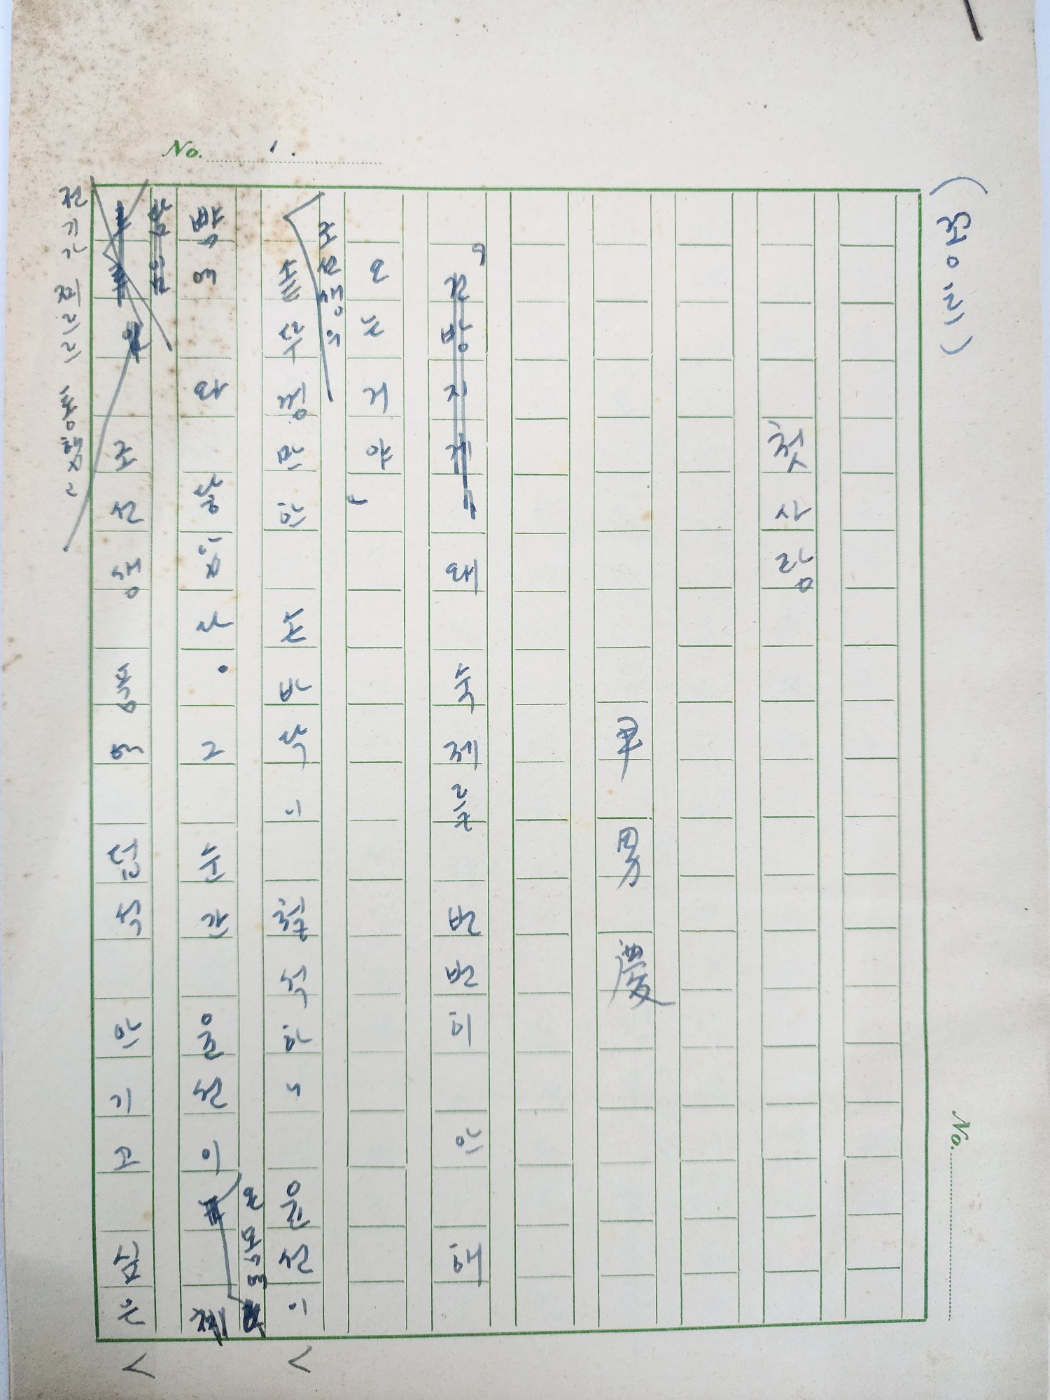 No. 1.
No.
첫사랑
尹 男 慶
건방지게 왜 숙제를 번번히 안 해
오는 거야
만한 손바닥이 철석하니 윤선이
뺨에 와 닿았다. 그 순간 윤선이
온 몸에
조선생 품에 안기고 싶은
전기가 찌르르 통했고